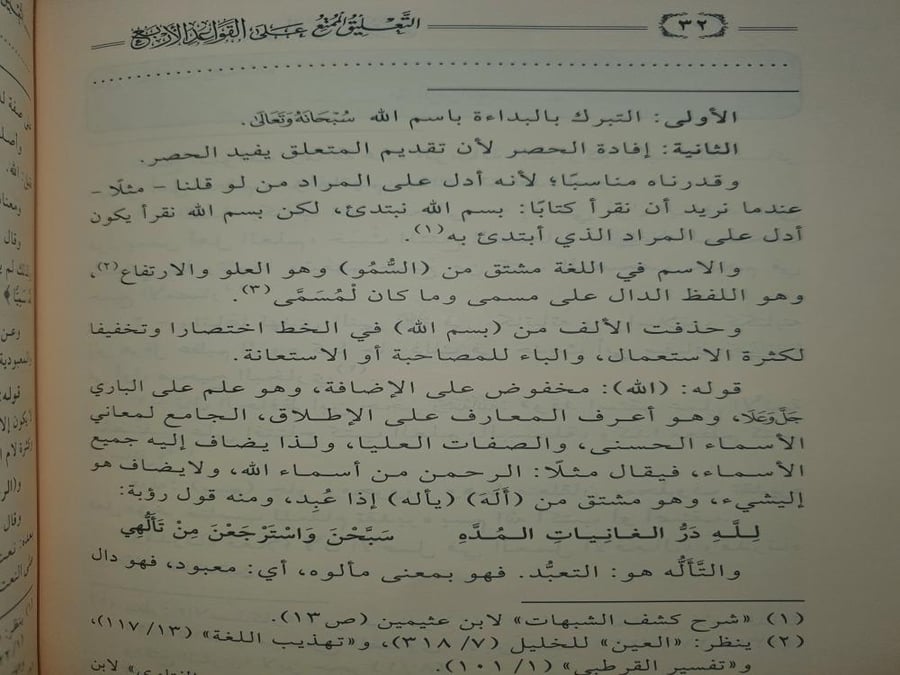 ٣٢
التَّعْلِيقُ الْمُمْتِعُ عَلَى القَوَاعِدِ الأَرْبَعِ
الأولى: التبرك بالبداءة باسم الله سُبْحَانَهُ وَتَعَالَى.
الثانية: إفادة الحصر لأن تقديم المتعلق يفيد الحصر.
وقدرناه مناسبًا؛ لأنه أدل على المراد من لو قلنا - مثلًا -
عندما نريد أن نقرأ كتابًا: بسم الله نبتدئ، لكن بسم الله نقرأ يكون
أدل على المراد الذي أبتدئ به(١).
والاسم في اللغة مشتق من (السُّمُو) وهو العلو والارتفاع(٢)،
وهو اللفظ الدال على مسمى وما كان لْمُسَمَّى(٣).
وحذفت الألف من (بسم الله) في الخط اختصارا وتخفيفا
لكثرة الاستعمال، والباء للمصاحبة أو الاستعانة.
قوله: (الله): مخفوض على الإضافة، وهو علم على الباري
جَلَّ وَعَلَا، وهو أعرف المعارف على الإطلاق، الجامع لمعاني
الأسماء الحسنى، والصفات العليا، ولذا يضاف إليه جميع
الأسماء، فيقال مثلًا: الرحمن من أسماء الله، ولايضاف هو
إليشيء، وهو مشتق من (أَلَهَ) (يأله) إذا عُبِد، ومنه قول رؤبة:
لِـلَّـهِ دَرُّ الـغَـانِـيـاتِ الـمُـدَّهِ سَبَّحْنَ وَاسْتَرْجَعْنَ مِنْ تَأَلُّهِي
والتَّأَلُّه هو: التعبُّد. فهو بمعنى مألوه، أي: معبود، فهو دال
(١) «شرح كشف الشبهات» لابن عثيمين (ص١٣).
(٢) ينظر: «العين» للخليل (٧/ ٣١٨)، و«تهذيب اللغة» (١٣/ ١١٧)،
و«تفسير القرطبي» (١/ ١٠١).